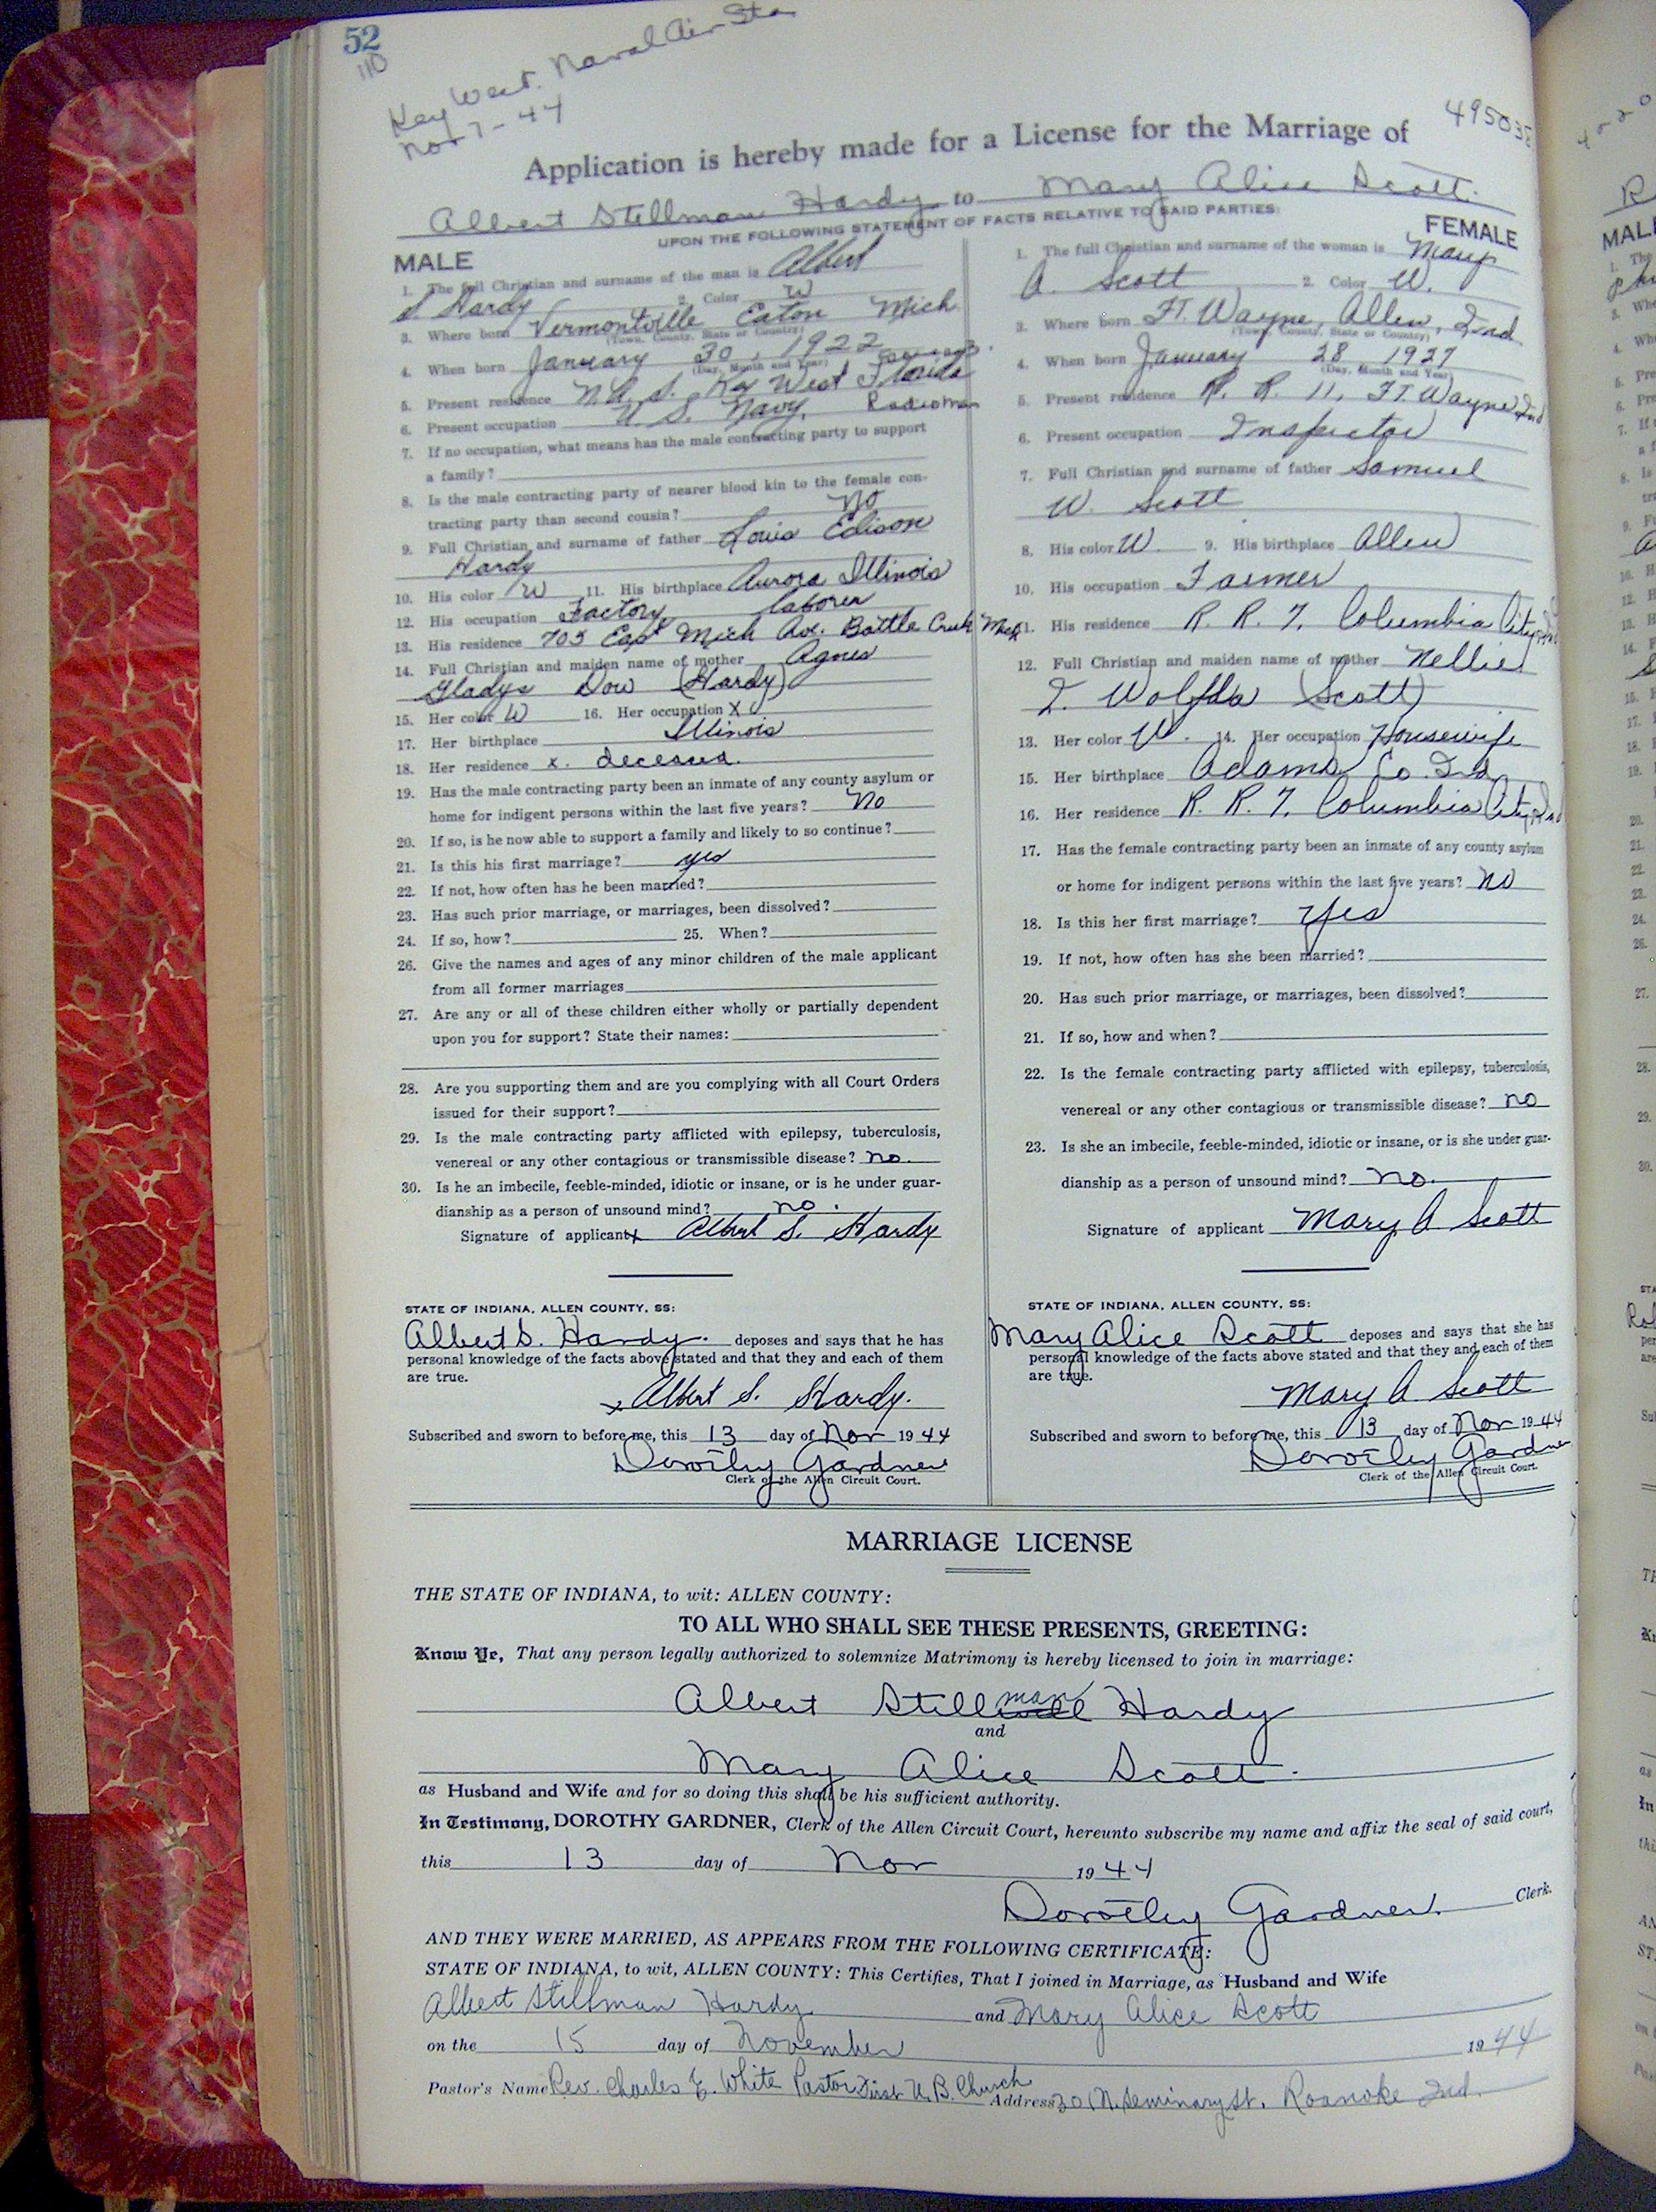 52
110
Key West. Naval Air Sta
Nov 7 - 44
Application is hereby made for a License for the Marriage of
Albert Stillman Hardy to Mary Alice Scott.
UPON THE FOLLOWING STATEMENT OF FACTS RELATIVE TO SAID PARTIES:
MALE
1. The full Christian and surname of the man is Albert
S Hardy 2. Color W
3. Where born Vermontville Eaton Mich
(Town, County, State or Country)
4. When born January 30, 1922
(Day, Month and Year)
5. Present residence N.A.S. Key West Florida
6. Present occupation U.S. Navy. Radioman
7. If no occupation, what means has the male contracting party to support
a family?
8. Is the male contracting party of nearer blood kin to the female con-
tracting party than second cousin? No
9. Full Christian and surname of father Louis Edison
Hardy
10. His color W 11. His birthplace Aurora Illinois
12. His occupation Factory laborer
13. His residence 703 East Mich Av. Battle Creek Mich
14. Full Christian and maiden name of mother Agnes
Gladys Dow (Hardy)
15. Her color W 16. Her occupation X
17. Her birthplace Illinois
18. Her residence x. deceased.
19. Has the male contracting party been an inmate of any county asylum or
home for indigent persons within the last five years? No
20. If so, is he now able to support a family and likely to so continue?
21. Is this his first marriage? yes
22. If not, how often has he been married?
23. Has such prior marriage, or marriages, been dissolved?
24. If so, how? 25. When?
26. Give the names and ages of any minor children of the male applicant
from all former marriages
27. Are any or all of these children either wholly or partially dependent
upon you for support? State their names:
28. Are you supporting them and are you complying with all Court Orders
issued for their support?
29. Is the male contracting party afflicted with epilepsy, tuberculosis,
venereal or any other contagious or transmissible disease? no.
30. Is he an imbecile, feeble-minded, idiotic or insane, or is he under guar-
dianship as a person of unsound mind? no.
Signature of applicant x Albert S. Hardy
STATE OF INDIANA, ALLEN COUNTY, SS:
Albert S. Hardy. deposes and says that he has
personal knowledge of the facts above stated and that they and each of them
are true.
x Albert S. Hardy.
Subscribed and sworn to before me, this 13 day of Nov 1944
Dorothy Gardner
Clerk of the Allen Circuit Court.
FEMALE
1. The full Christian and surname of the woman is Mary
A. Scott 2. Color W.
3. Where born Ft. Wayne, Allen, Ind
(Town, County, State or Country)
4. When born January 28 1927
(Day, Month and Year)
5. Present residence R. R. 11, Ft. Wayne Ind
6. Present occupation Inspector
7. Full Christian and surname of father Samuel
W. Scott
8. His color W. 9. His birthplace Allen
10. His occupation Farmer
11. His residence R. R. 7, Columbia City, Ind
12. Full Christian and maiden name of mother Nellie
(Scott)
13. Her color W. 14. Her occupation Housewife
15. Her birthplace Adams Co. Ind
16. Her residence R. R. 7, Columbia City, Ind
17. Has the female contracting party been an inmate of any county asylum
or home for indigent persons within the last five years? No
18. Is this her first marriage? Yes
19. If not, how often has she been married?
20. Has such prior marriage, or marriages, been dissolved?
21. If so, how and when?
22. Is the female contracting party afflicted with epilepsy, tuberculosis,
venereal or any other contagious or transmissible disease? no
23. Is she an imbecile, feeble-minded, idiotic or insane, or is she under guar-
dianship as a person of unsound mind? no.
Signature of applicant Mary A Scott
STATE OF INDIANA, ALLEN COUNTY, SS:
Mary Alice Scott deposes and says that she has
personal knowledge of the facts above stated and that they and each of them
are true.
Mary A Scott
Subscribed and sworn to before me, this 13 day of Nov 1944
Dorothy Gardner
Clerk of the Allen Circuit Court.
MARRIAGE LICENSE
THE STATE OF INDIANA, to wit: ALLEN COUNTY:
TO ALL WHO SHALL SEE THESE PRESENTS, GREETING:
Know Ye, That any person legally authorized to solemnize Matrimony is hereby licensed to join in marriage:
Albert Stillman Hardy
and
Mary Alice Scott.
as Husband and Wife and for so doing this shall be his sufficient authority.
In Testimony, DOROTHY GARDNER, Clerk of the Allen Circuit Court, hereunto subscribe my name and affix the seal of said court,
this 13 day of Nov 1944
Dorothy Gardner. Clerk.
AND THEY WERE MARRIED, AS APPEARS FROM THE FOLLOWING CERTIFICATE:
STATE OF INDIANA, to wit, ALLEN COUNTY: This Certifies, That I joined in Marriage, as Husband and Wife
Albert Stillman Hardy and Mary Alice Scott
on the 15 day of November 1944
Pastor's Name Rev. Charles E. White Pastor First U. B. Church Address 301 N. Seminary St. Roanoke Ind.